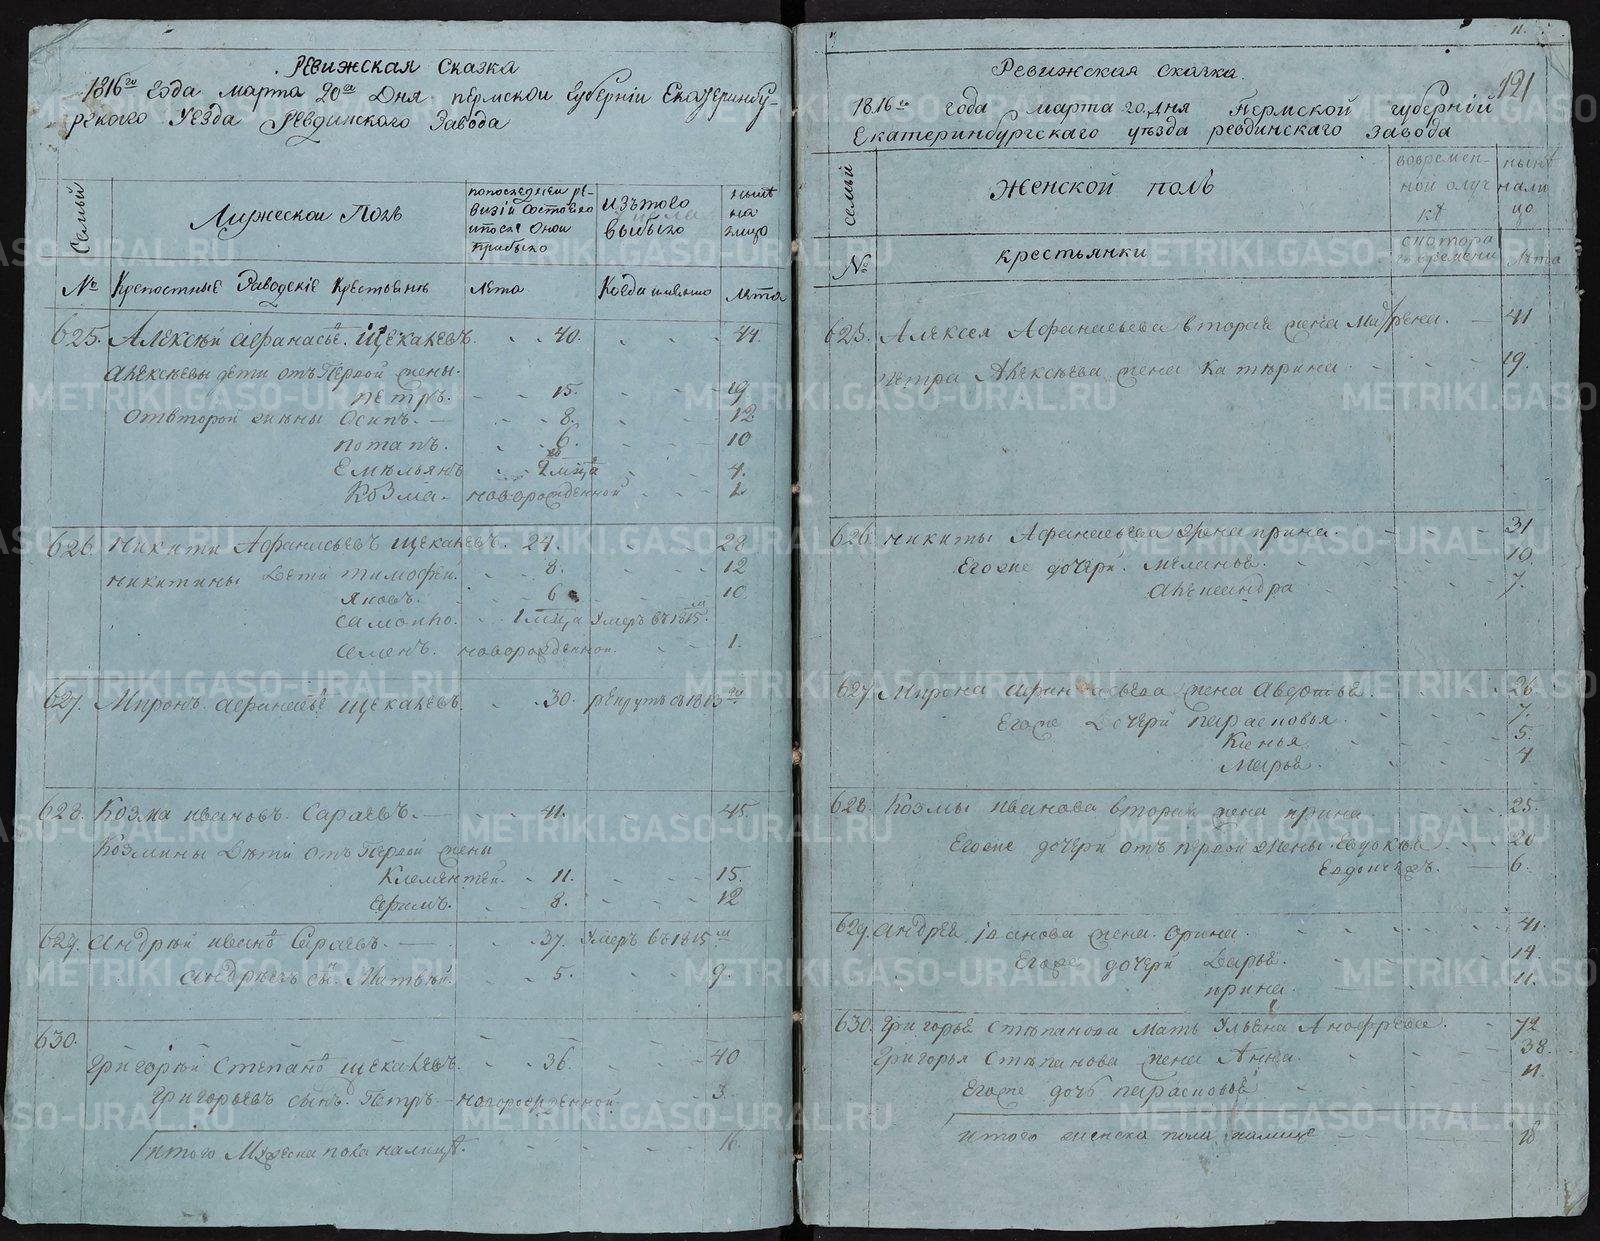 Ревижская сказка
1816го года марта 20го дня пермской губерніи Екатеринбу-
ргского уезда Ревдинского завода
Семьи
Мужеской Полъ
попоследней ре-
визіи состояло
ипосле оной
прибыло
изътого
числа
выбыло
ныне
на
лицо
№
Крепостные Заводскіе Крестьяне
лета
Когда имянно
лета
625. Алексей афанасье. щекалевъ. 40. 44.
Алексеевы дети отъ Первой жены.
петръ. 15. 19
отвторой жены Осипъ. 8. 12
потапъ. 6. 10
Емельянъ 2 мца 4.
Козма. новорожденной 1.
626 никита Афанасьевъ щекалевъ. 24. 28
никитины дети тимофеи. 8. 12
яковъ. 6 10
самоило. 1 мца Умеръ въ 1815м.
семенъ. новорожденной. 1.
627. Миронъ афанасье щекалевъ. 30. рекрутъ съ 1813го
628. Козма ивановъ. Сараевъ. 41. 45
Козмины дети отъ Первой жены
Клементей. 11. 15.
Ефимъ. 8. 12
629. андрей ивано Сараевъ. 37. Умеръ въ 1815м
андреевъ сы. Матвей. 5. 9.
630.
григорей Степано щекалевъ. 36. 40
григорьевъ сынъ. Петръ новорожденной 3.
итого Мужеска пола налице. 16.
11.
Ревижская сказка.
121
1816го года марта 20. дня Пермской губерніи
Екатеринбургскаго уезда ревдинскаго завода
семьи
Женской полъ
вовремен-
ной отлуч
ке
ныне
налі
цо
№
крестьянки
скотора
го времени
лета
625. Алексея Афанасьева вторая жена Матрена. 41
петра Алексеева жена Катерина. 19.
626. никиты Афанасьева жена ирина. 31
Егоже дочери. Меланья. 10
Александра 7.
627 Мирона афанасьева жена Авдотья. 26
Егоже дочери парасковья. 7.
Ксенья 5.
Марья. 4
628. Козмы иванова вторая жена ирина 25.
Егоже дочери отъ первой жены Евдокея. 20
6.
629. андрея іванова жена. Орина. 41.
Егоже дочери Дарья. 14
ирина. 11.
630. григорья степанова мать Ульяна Анофреева. 72
григорья степанова жена Анна. 38.
Егоже дочь парасковья 11
итого женска пола налице 18
METRIKI.GASO-URAL.RU